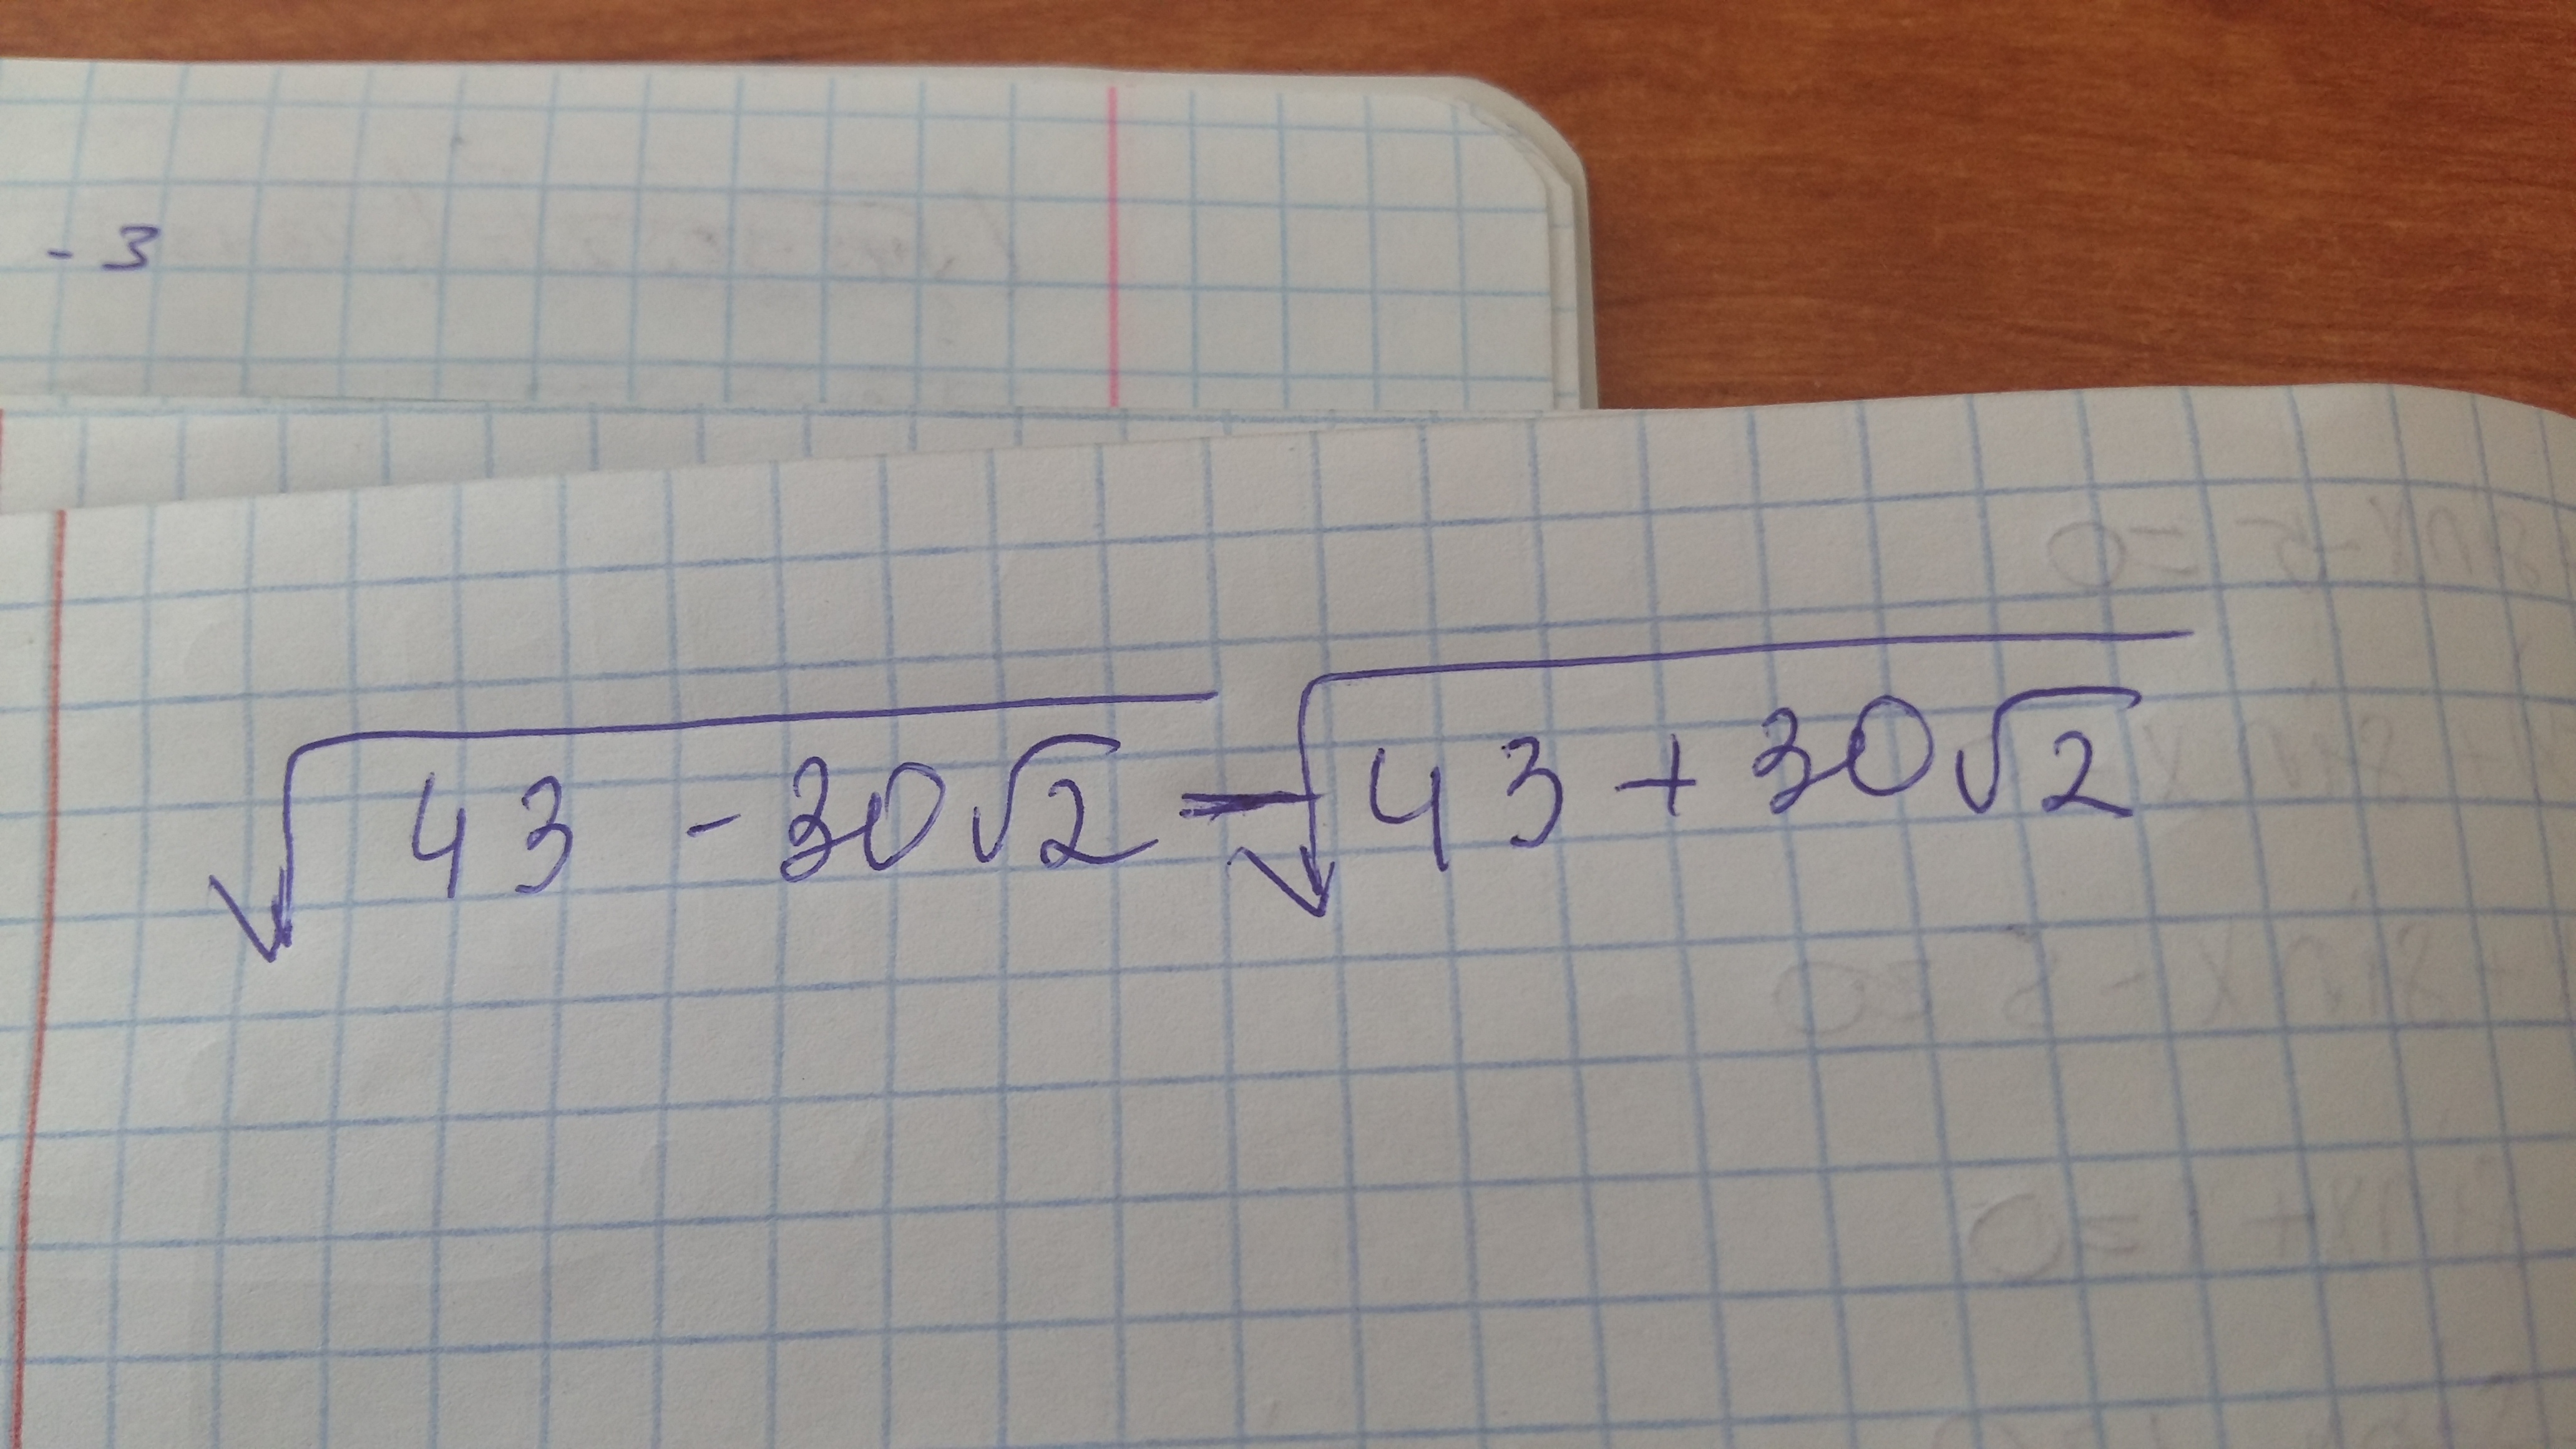 - 3
√43 - 30√2 - √43 + 30√2